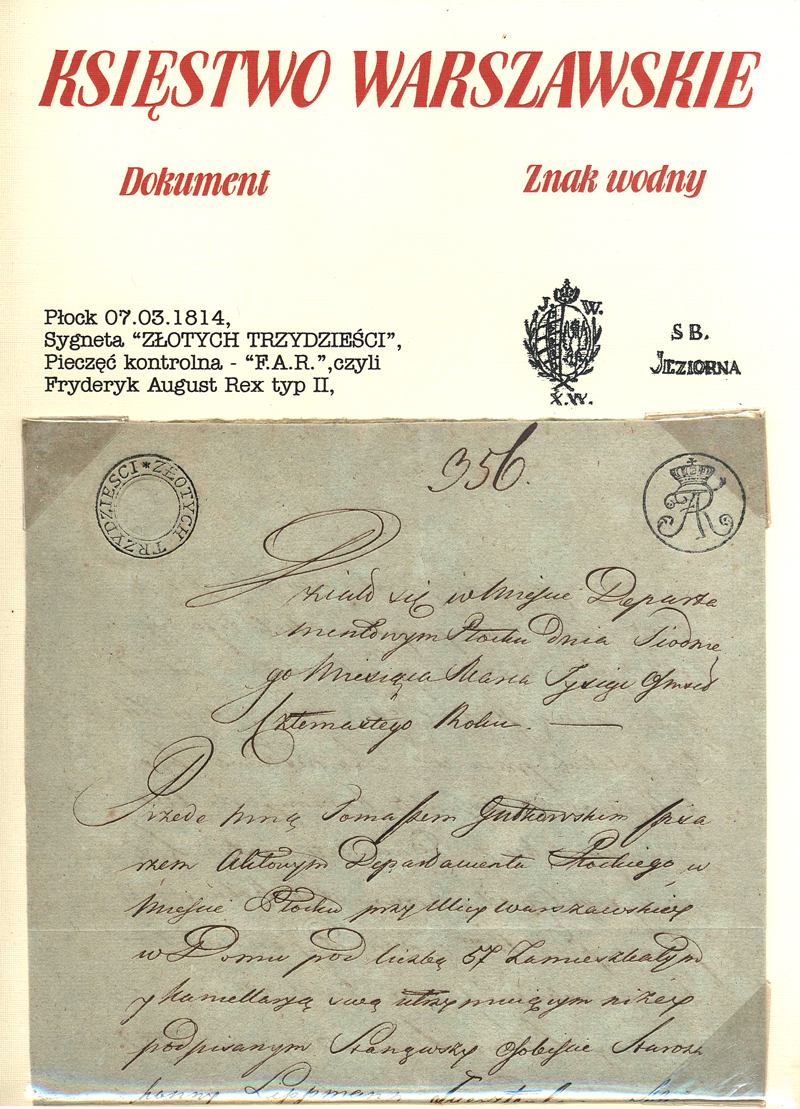 KSIĘSTWO WARSZAWSKIE
Dokument
Znak wodny
Płock 07.03.1814,
Sygneta “ZŁOTYCH TRZYDZIEŚCI”,
Pieczęć kontrolna - “F.A.R.”,czyli
Fryderyk August Rex typ II,
J. W.
X.W.
S B.
JEZIORNA
ZŁOTYCH TRZYDZIESCI *
356.
FAR
Działo się w Mieście Departa
mentowym Płocku Dnia Siodme
go Miesiąca Marca Tysiąc Ośmset
Czternastego Roku. —
Przede mną Tomaszem Gutkowskim pisa
rzem Aktowym Departamentu Płockiego w
Mieście Płocku przy Ulicy Warszawskiey
w Domu pod liczbą 57 Zamieszkałym
y Kancellaryą swą utrzymuiącym niżey
podpisanym Stanąwszy Osobiście Staroza
konny Lippmann